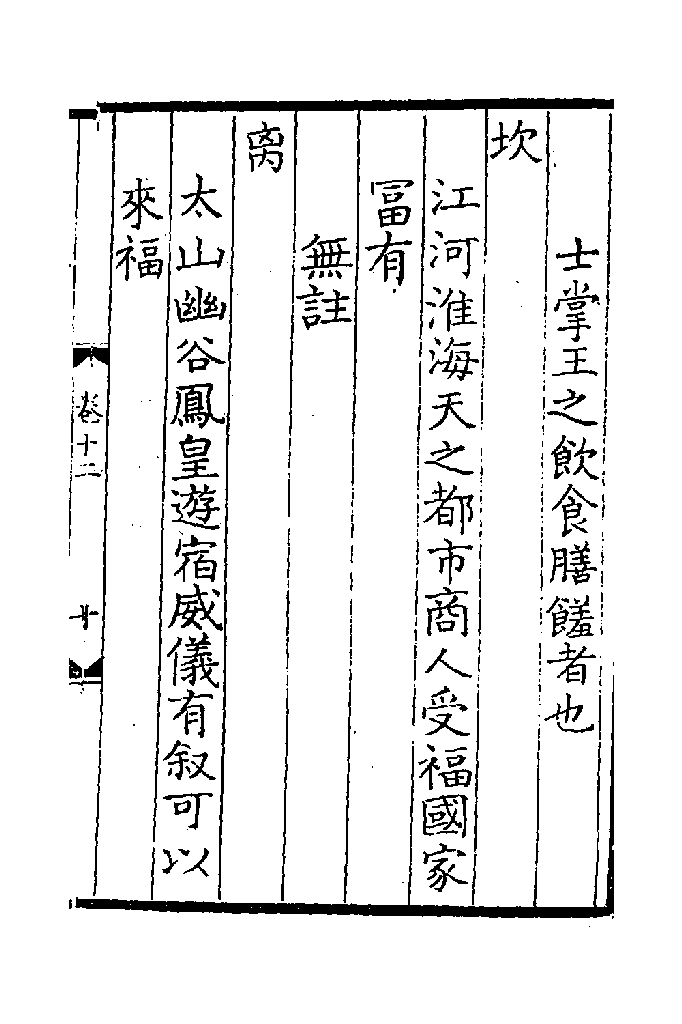 士掌王之飲食膳饈者也
坎
江河淮海天之都市商人受福國家
富有
無註
离
太山幽谷鳳皇遊宿威儀有叙可以
來福
卷十二
十